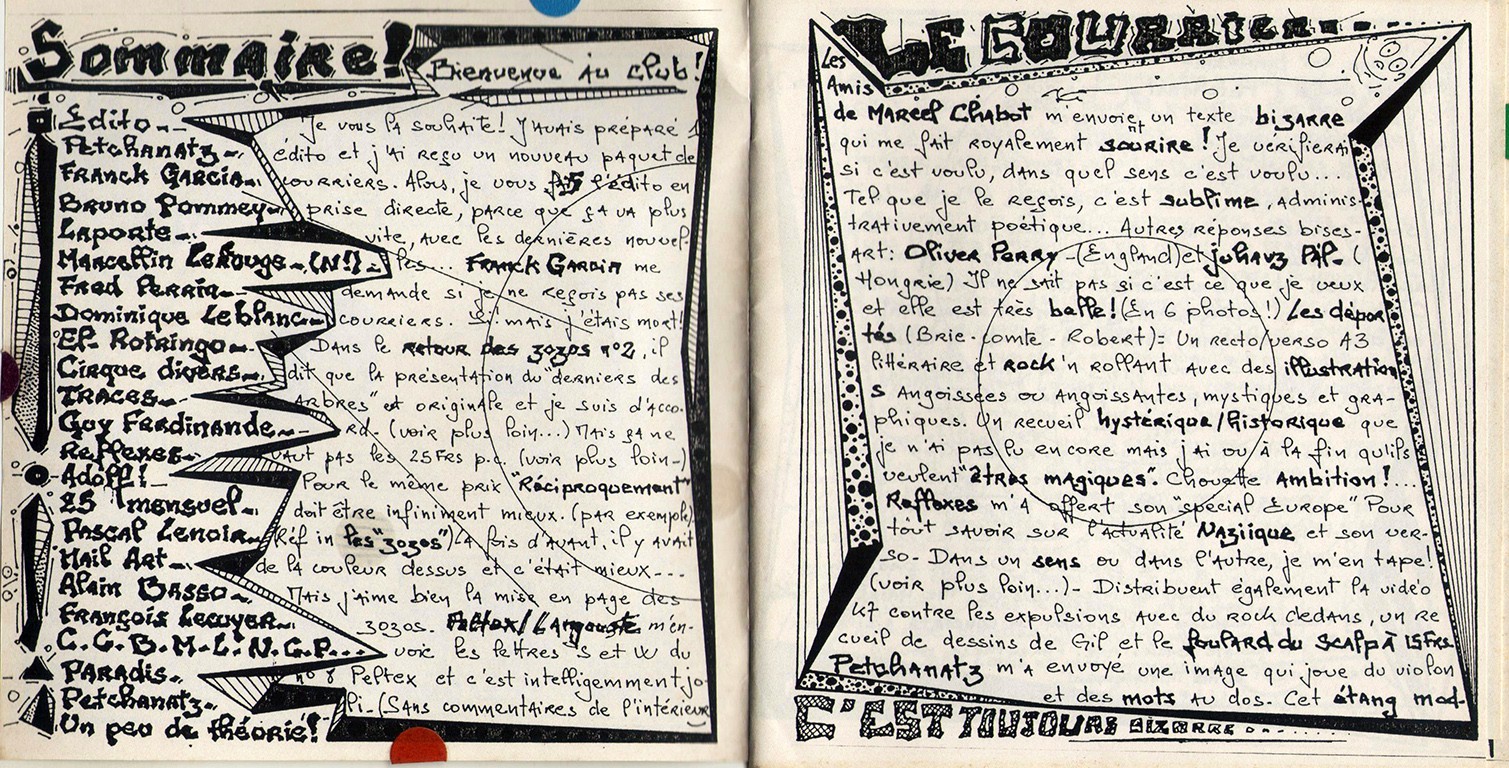 Sommaire!
Bienvenue au club!
Edito--
Petchanatz--
Franck Garcia--
Bruno Pommey--
Laporte--
Marcellin Lerouge--(N!)--
Fred Perrin--
Dominique Leblanc--
El Rotringo--
Cirque divers--
Traces--
Guy Ferdinande--
Reflexes--
Adolf!--
25 mensuel--
Pascal Lenoir--
Mail Art--
Alain Basso--
François Lecuyer--
C.C.B.M.L.N.C.P...
Paradis--
Petchanatz--
Un peu de théorie!
Je vous la souhaite! J'avais préparé 1
édito et j'ai reçu un nouveau paquet de
courriers. Alors, je vous fais l'édito en
prise directe, parce que ça va plus
vite, avec les dernières nouvel-
les... Franck Garcia me
demande si je ne reçois pas ses
courriers. Si! mais j'étais mort!
Dans le retour des zozos n°2, il
dit que la présentation du "derniers des
Arbres" et originale et je suis d'acco-
rd- (voir plus loin...) Mais ça ne
vaut pas les 25Frs p.c. (voir plus loin-)
Pour le même prix "Réciproquement"
doit être infiniment mieux. (par exemple)
(Réf in les "zozos") La fois d'avant, il y avait
de la couleur dessus et c'était mieux---
Mais j'aime bien la mise en page des
zozos. Peltex/L'Angouste m'en-
voie les lettres S et W du
n° 8 Peltex et c'est intelligemment jo-
li-(Sans commentaires de l'intérieur
Le Courrier...
Les
Amis
de Marcel Chabot m'envoient un texte bizarre
qui me fait royalement sourire! Je vérifierai
si c'est voulu, dans quel sens c'est voulu...
Tel que je le reçois, c'est sublime, adminis-
trativement poétique... Autres réponses bises-
art: Oliver Perry-(England) et Juhavz Pál-(
Hongrie) Il ne sait pas si c'est ce que je veux
et elle est très belle! (En 6 photos!) Les dépor
tés (Brie-comte-Robert): Un recto/verso A3
littéraire et rock'n rollant avec des illustration
s angoissées ou angoissantes, mystiques et gra-
phiques. Un recueil hystérique/historique que
je n'ai pas lu encore mais j'ai ou à la fin qu'ils
veulent "êtres magiques". Chouette Ambition!...
Reflexes m'a offert son "spécial Europe" Pour
tout savoir sur l'actualité Naziique et son ver-
so- Dans un sens ou dans l'autre, je m'en tape!
(voir plus loin...)- Distribuent également la vidéo
K7 contre les expulsions avec du rock dedans, un re
cueil de dessins de Gil et le foulard du Scalp à 15Frs
Petchanatz m'a envoyé une image qui joue du violon
et des mots au dos. Cet étang mod-
C'EST TOUJOURS BIZARRE
1